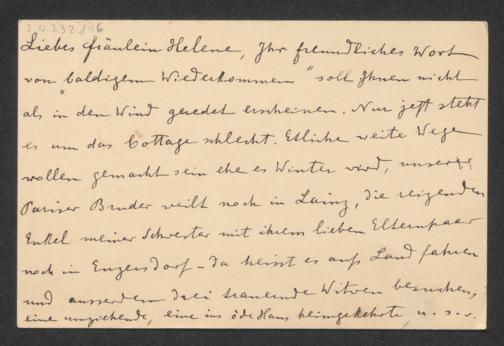 I.N. 232.846
Liebes Fräulein Helene, Ihr freundliches Wort
vom "baldigem Wiederkommen" soll Ihnen nicht
als in den Wind geredet erscheinen. Nur jetzt steht
es um das Cottage schlecht. Etliche weite Wege
wollen gemacht sein ehe es Winter wird, unser
Pariser Bruder weilt noch in Lainz, die reizenden
Enkel meiner Schwester mit ihrem lieben Elternpaar
noch in Enzersdorf – da heisst es aufs Land fahren
und ausserdem drei trauernde Witwen besuchen,
eine umziehende, eine ins öde Haus heimgekehrte u. s. w.